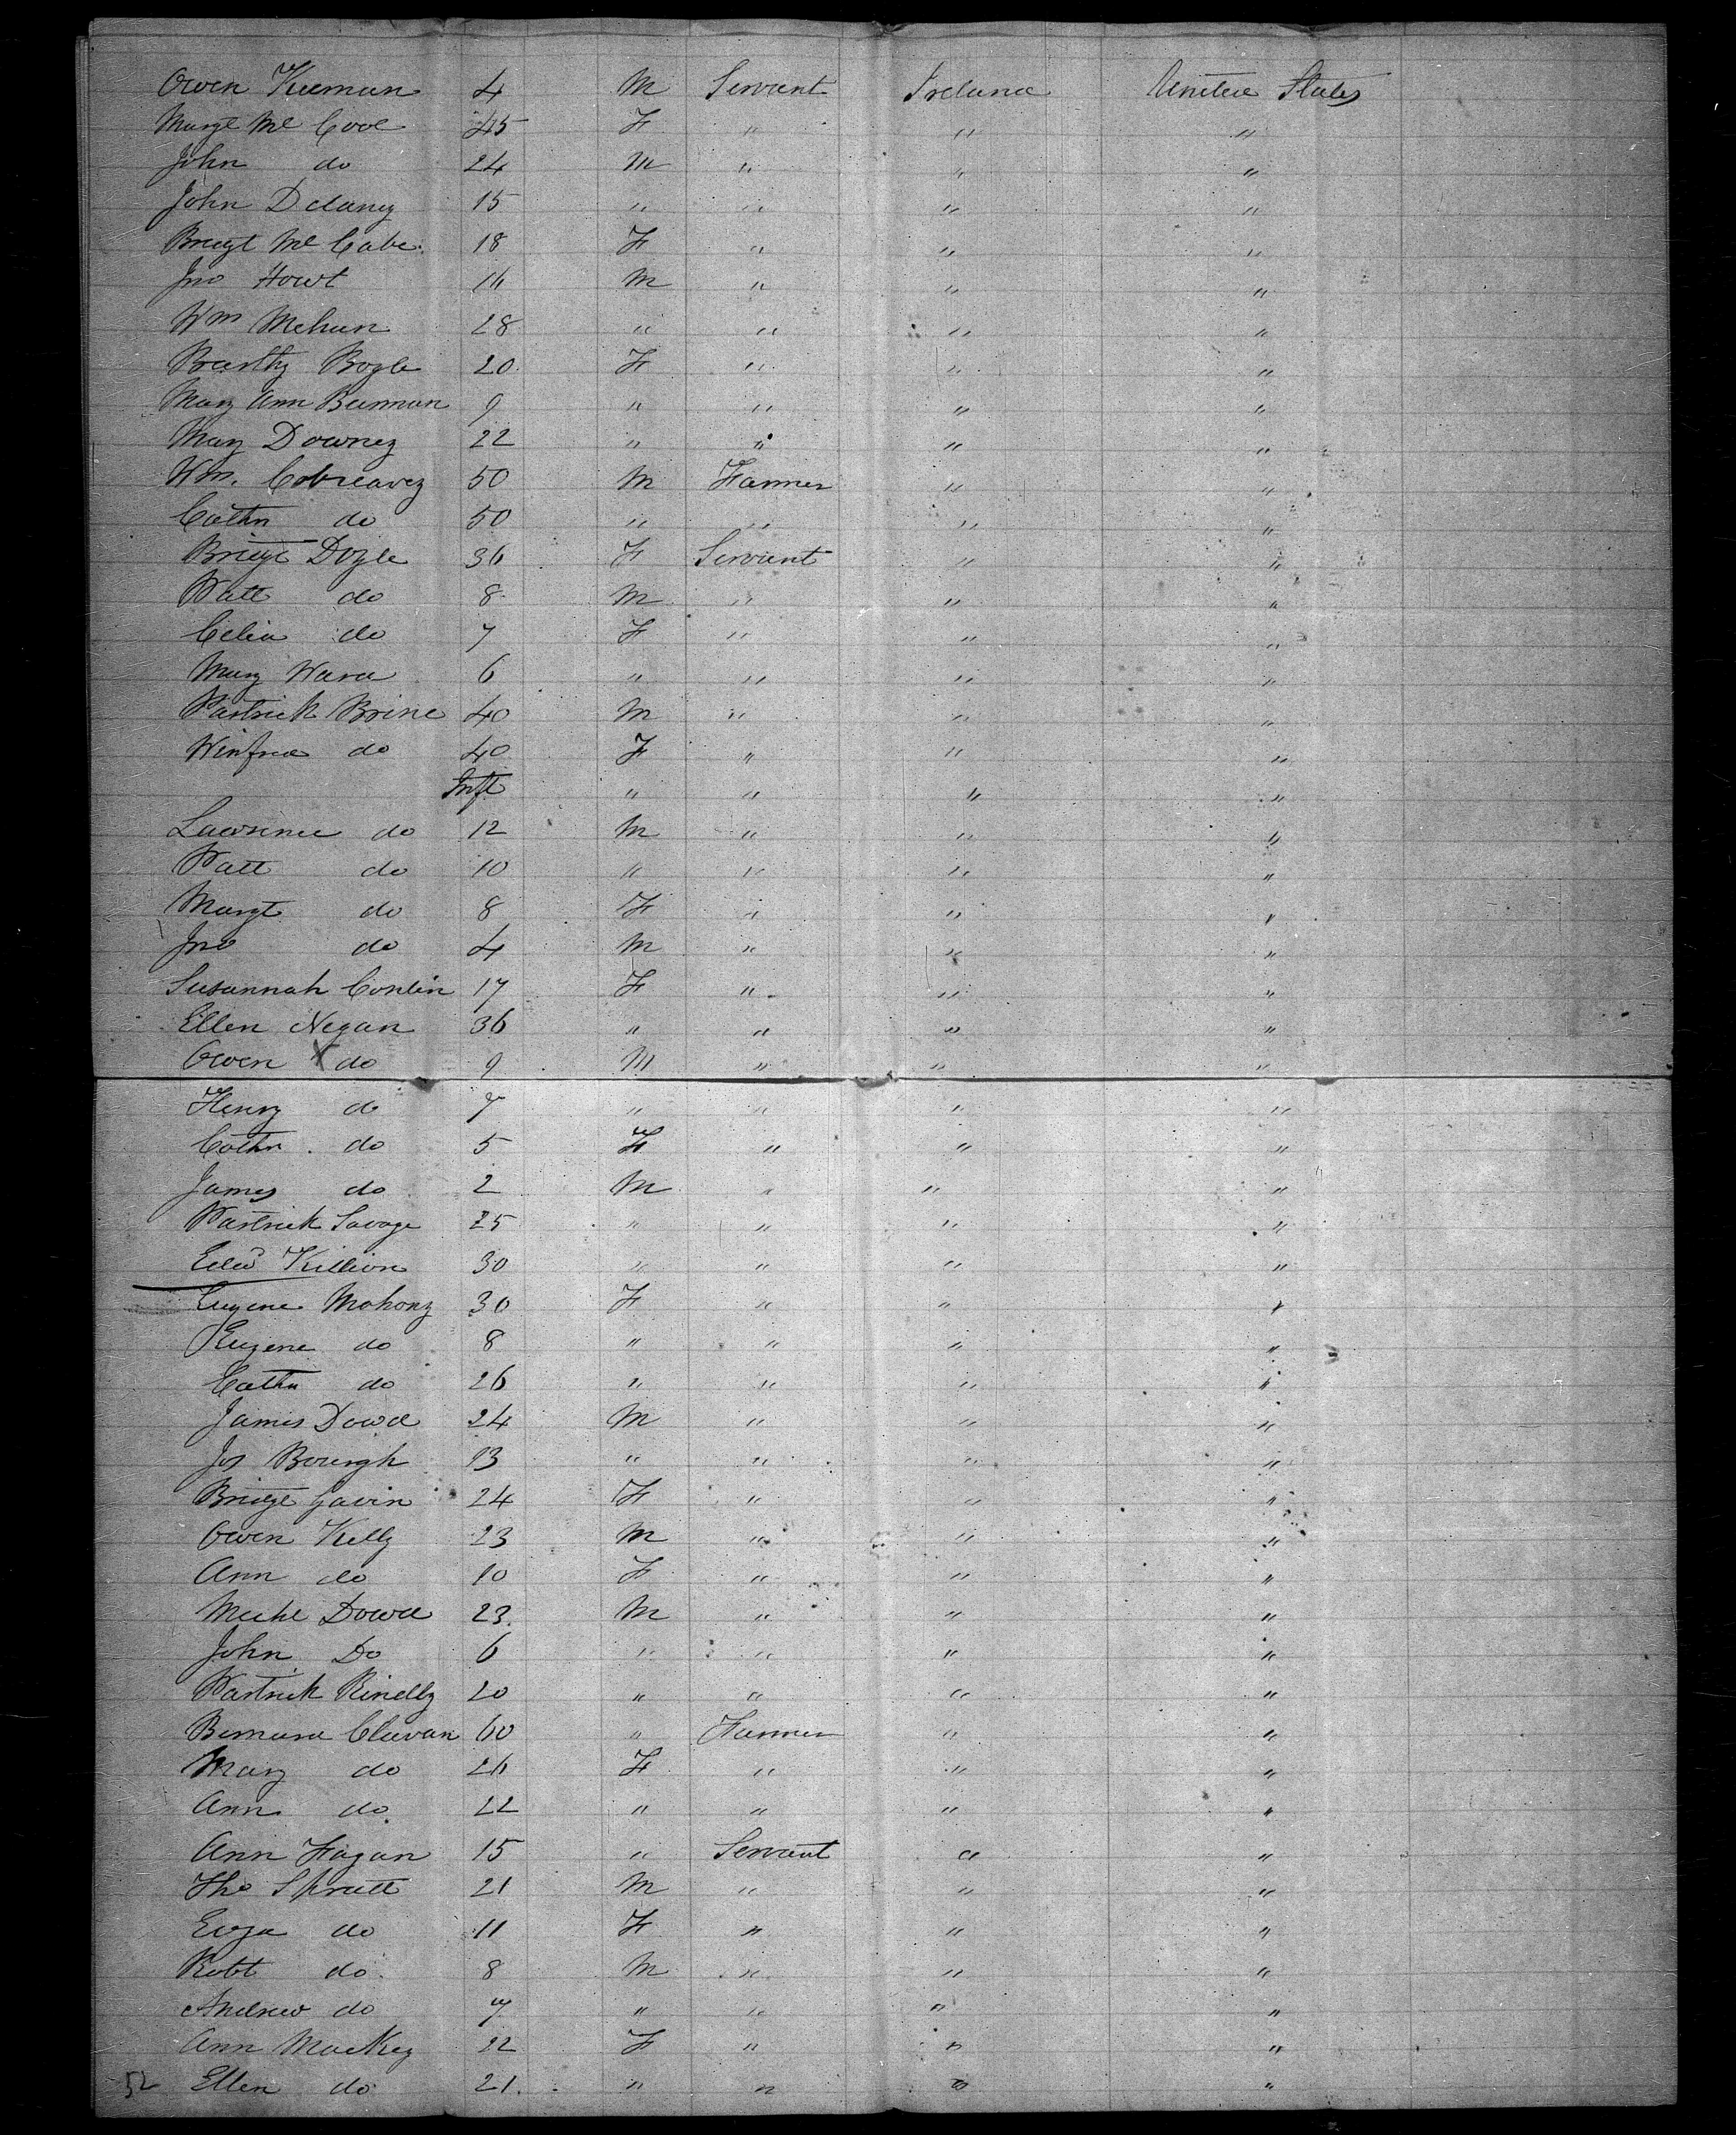 Owen Kieman 4 M Servant Ireland United States
Margt McCool 45 F " " "
John do 24 M " " "
John Delaney 15 " " " "
Bregt McCabe 18 F " " "
Jno Howt 16 M " " "
Wm Mehan 28 " " " "
Barthy Bogle 20 F " " "
Mary Ann Beirman 9 " " " "
Mary Downey 22 " " " "
Wm. 50 M Farmer " "
Cathn do 50 " " " "
Bridgt Doyle 36 F Servant " "
Patt do 8 M " " "
Celia do 7 F " " "
Mary Ward 6 " " " "
Patrick Brine 40 M " " "
Winfred do 40 F " " "
Inft " " " "
Lawrence do 12 M " " "
Patt do 10 " " " "
Margt do 8 F " " "
Jno do 4 M " " "
Susannah Conlin 17 F " " "
Ellen Negan 36 " " " "
Owen X do 9 M " " "
Henry do 7 " " " "
Cathn do 5 F " " "
James do 2 M " " "
Patrick Savage 25 " " " "
Edwd Killion 30 " " " "
Eugene Mahony 30 F " " "
Eugene do 8 " " " "
Cathn do 26 " " " "
James Dowd 24 M " " "
Jos Bourgh 13 " " " "
Bridgt Gavin 24 F " " "
Owen Kelly 23 M " " "
Ann do 10 F " " "
Michl Dowd 23 M " " "
John Do 6 " " " "
Patrick Rinelly 20 " " " "
Bernard Clavan 60 " Farmer " "
Mary do 26 F " " "
Ann do 22 " " " "
Ann Fagan 15 " Servant " "
Tho Spratt 21 M " " "
Eliza do 11 F " " "
Robt do 8 M " " "
Andrew do 7 " " " "
Ann Mackey 22 F " " "
52 Ellen do 21 " " " "